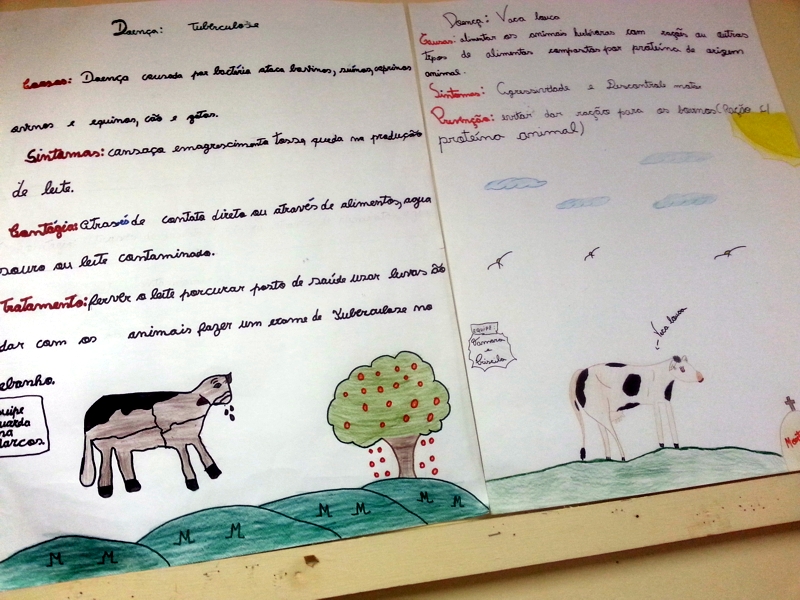 Doença: Tuberculose
Causas: Doença causada por bactéria ataca bovinos, suínos, caprinos
ovinos e equinos, cão e gatos.
Sintomas: cansaço emagrescimento tosse, queda na produção
de leite.
Contágio: Através de contato direto ou através de alimentos, agua
souro ou leite contaminado.
Tratamento: ferver o leite porcurar posto de saúde usar luvas ao
dar com os animais fazer um exame de Tuberculose no
ebanho.
quipe
uarda
Marcos
Doença: Vaca louca
Causas: alimentar os animais hebívoros com rações ou outras
tipos de alimentos compostos por proteína de origem
animal.
Sintomas: Agressividade e Descontrole motor
Prevenção: evitar dar ração para os bovinos (Ração c/
proteína animal)
EQUIPE:
Tamara
e
Priscila
Vaca louca
Mort